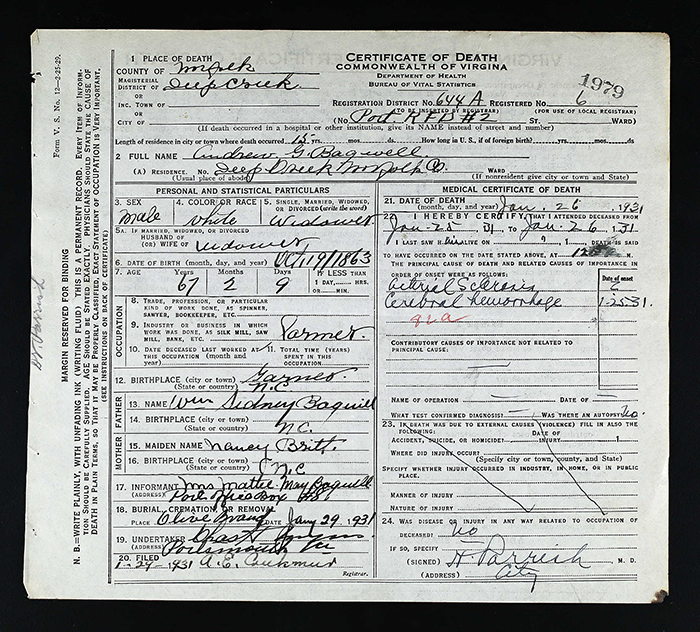 Form V. S. No. 12—2-25-29.
MARGIN RESERVED FOR BINDING
N. B.—WRITE PLAINLY, WITH UNFADING INK (WRITING FLUID) THIS IS A PERMANENT RECORD. EVERY ITEM OF INFORMATION SHOULD BE CAREFULLY SUPPLIED. AGE SHOULD BE STATED EXACTLY. PHYSICIANS SHOULD STATE THE CAUSE OF DEATH IN PLAIN TERMS, SO THAT IT MAY BE PROPERLY CLASSIFIED. EXACT STATEMENT OF OCCUPATION IS VERY IMPORTANT.
(SEE INSTRUCTIONS ON BACK OF CERTIFICATE)
1 PLACE OF DEATH
COUNTY OF Norfolk
MAGISTERIAL DISTRICT OF Deep Creek
or
INC. TOWN OF
or
CITY OF
CERTIFICATE OF DEATH
COMMONWEALTH OF VIRGINIA
DEPARTMENT OF HEALTH
BUREAU OF VITAL STATISTICS
1979
REGISTRATION DISTRICT NO. 644A REGISTERED NO. 6
(TO BE INSERTED BY REGISTRAR) (FOR USE OF LOCAL REGISTRAR)
(No. Port RFD #2 ST. WARD)
(If death occurred in a hospital or other institution, give its NAME instead of street and number)
Length of residence in city or town where death occurred 15 yrs. mos. ds. How long in U. S., if of foreign birth? yrs. mos. ds.
2 FULL NAME Andrew G. Bagwell
(A) RESIDENCE. No. Deep Creek Norfolk Co. WARD
(Usual place of abode) (If nonresident give city or town and State)
PERSONAL AND STATISTICAL PARTICULARS
3. SEX male
4. COLOR OR RACE white
5. SINGLE, MARRIED, WIDOWED, OR DIVORCED (write the word) Widower
5A. IF MARRIED, WIDOWED, OR DIVORCED
HUSBAND OF
(OR) WIFE OF widower
6. DATE OF BIRTH (month, day, and year) Oct 19/1863
7. AGE 67 2 9 IF LESS THAN
1 DAY, HRS.
OR MIN.
OCCUPATION
8. TRADE, PROFESSION, OR PARTICULAR KIND OF WORK DONE, AS SPINNER, SAWYER, BOOKKEEPER, ETC.
9. INDUSTRY OR BUSINESS IN WHICH WORK WAS DONE, AS SILK MILL, SAW MILL, BANK, ETC. Farmer
10. DATE DECEASED LAST WORKED AT THIS OCCUPATION (month and year)
11. TOTAL TIME (YEARS) SPENT IN THIS OCCUPATION
12. BIRTHPLACE (city or town) Garner
(State or country) N.C.
FATHER
13. NAME Wm Sidney Bagwell
14. BIRTHPLACE (city or town)
(State or country) N.C.
MOTHER
15. MAIDEN NAME Nancy Britt
16. BIRTHPLACE (city or town)
(State or country) N.C
17. INFORMANT Mrs Mattie May Bagwell
(ADDRESS) Port Box
18. BURIAL, CREMATION OR REMOVAL
PLACE Olive Branch DATE Jany 29, 1931
19. UNDERTAKER
(ADDRESS) Portsmouth Va
20. FILED 1-29-1931 A. C.
Registrar.
MEDICAL CERTIFICATE OF DEATH
21. DATE OF DEATH (month, day, and year) Jan. 26, 1931
22. I HEREBY CERTIFY, THAT I ATTENDED DECEASED FROM
Jan-25 31 TO Jan-26, 31
I LAST SAW H ALIVE ON 1 DEATH IS SAID
TO HAVE OCCURRED ON THE DATE STATED ABOVE, AT M.
THE PRINCIPAL CAUSE OF DEATH AND RELATED CAUSES OF IMPORTANCE IN ORDER OF ONSET WERE AS FOLLOWS:
Date of onset
Arterial Sclerosis
Cerebral hemorrhage 1-25-31
92a
CONTRIBUTORY CAUSES OF IMPORTANCE NOT RELATED TO PRINCIPAL CAUSE:
NAME OF OPERATION — DATE OF —
WHAT TEST CONFIRMED DIAGNOSIS? — WAS THERE AN AUTOPSY? No
23. IF DEATH WAS DUE TO EXTERNAL CAUSES (VIOLENCE) FILL IN ALSO THE FOLLOWING:
ACCIDENT, SUICIDE, OR HOMICIDE? DATE OF INJURY 1
WHERE DID INJURY OCCUR?
(Specify city or town, county, and State)
SPECIFY WHETHER INJURY OCCURRED IN INDUSTRY, IN HOME, OR IN PUBLIC PLACE.
MANNER OF INJURY
NATURE OF INJURY
24. WAS DISEASE OR INJURY IN ANY WAY RELATED TO OCCUPATION OF DECEASED? No
IF SO, SPECIFY
(SIGNED) H Parrish M. D.
(ADDRESS) City
Dr Parrish